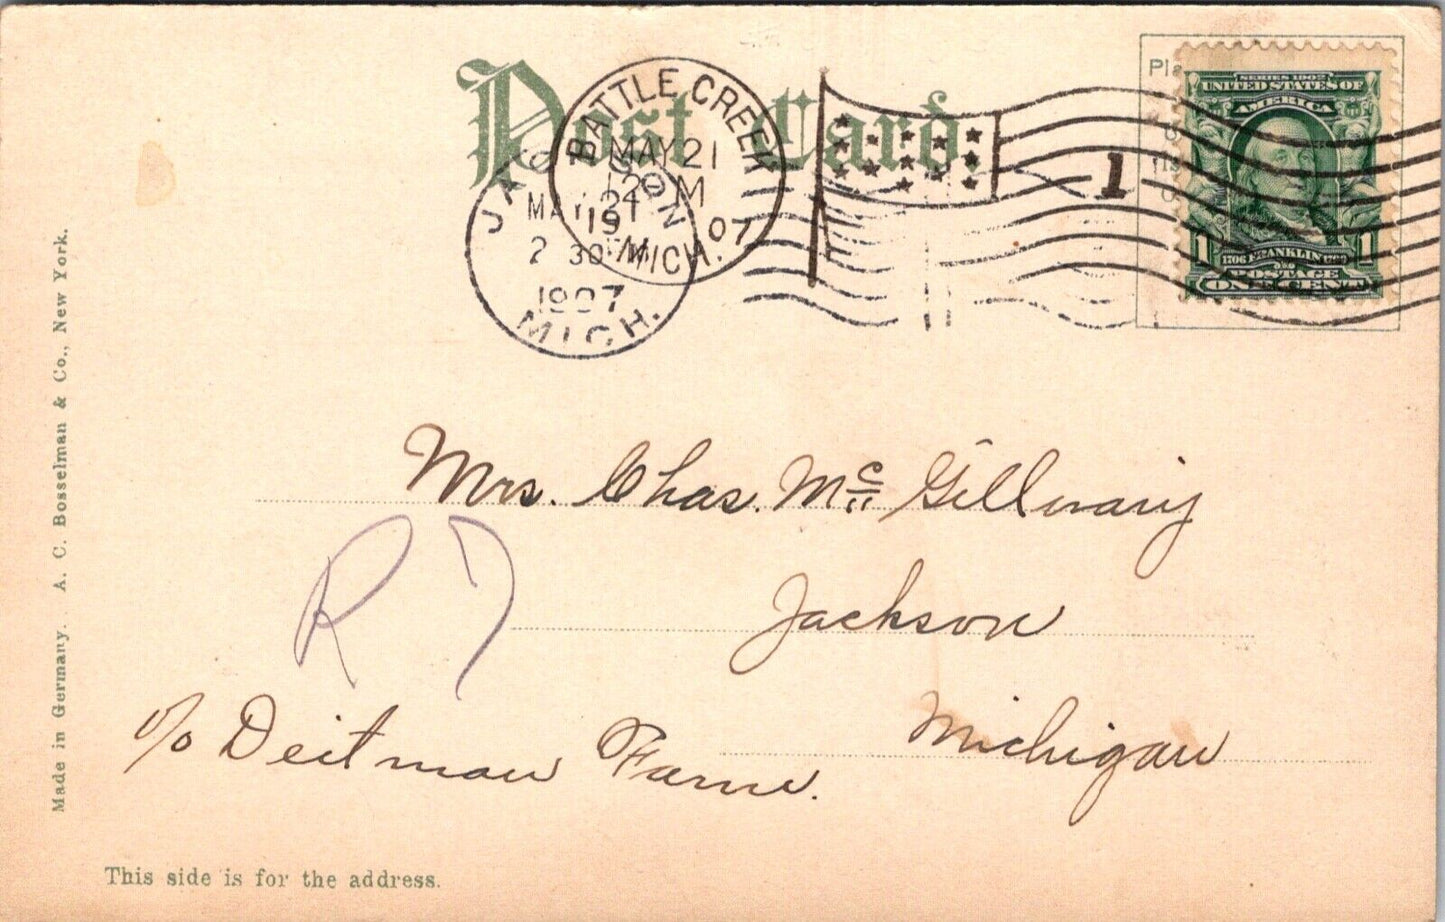 Post Card.
BATTLE CREEK
MAY 21
12 M
19 07
MICH.
JACKSON
MAY 21
2 30 PM
1907
MICH.
1
SERIES 1902
UNITED STATES OF
AMERICA
1 1706 FRANKLIN 1790 1
POSTAGE
ONE CENT
Mrs. Chas. Mc Gillivary
R 7
Jackson
Michigan
c/o Deitman Farm.
This side is for the address.
Made in Germany. A. C. Bosselman & Co., New York.